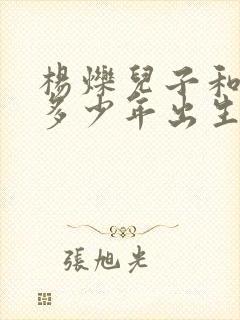 楊爍兒子和
多少年出生
張旭光